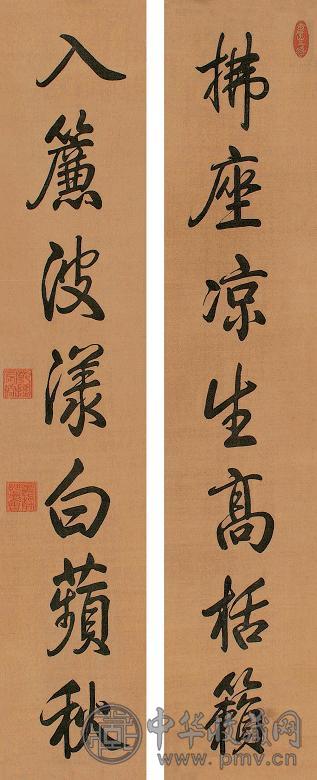 拂座凉生高栝籁
入簾波漾白蘋秋
中华收藏网
www.pmv.cn